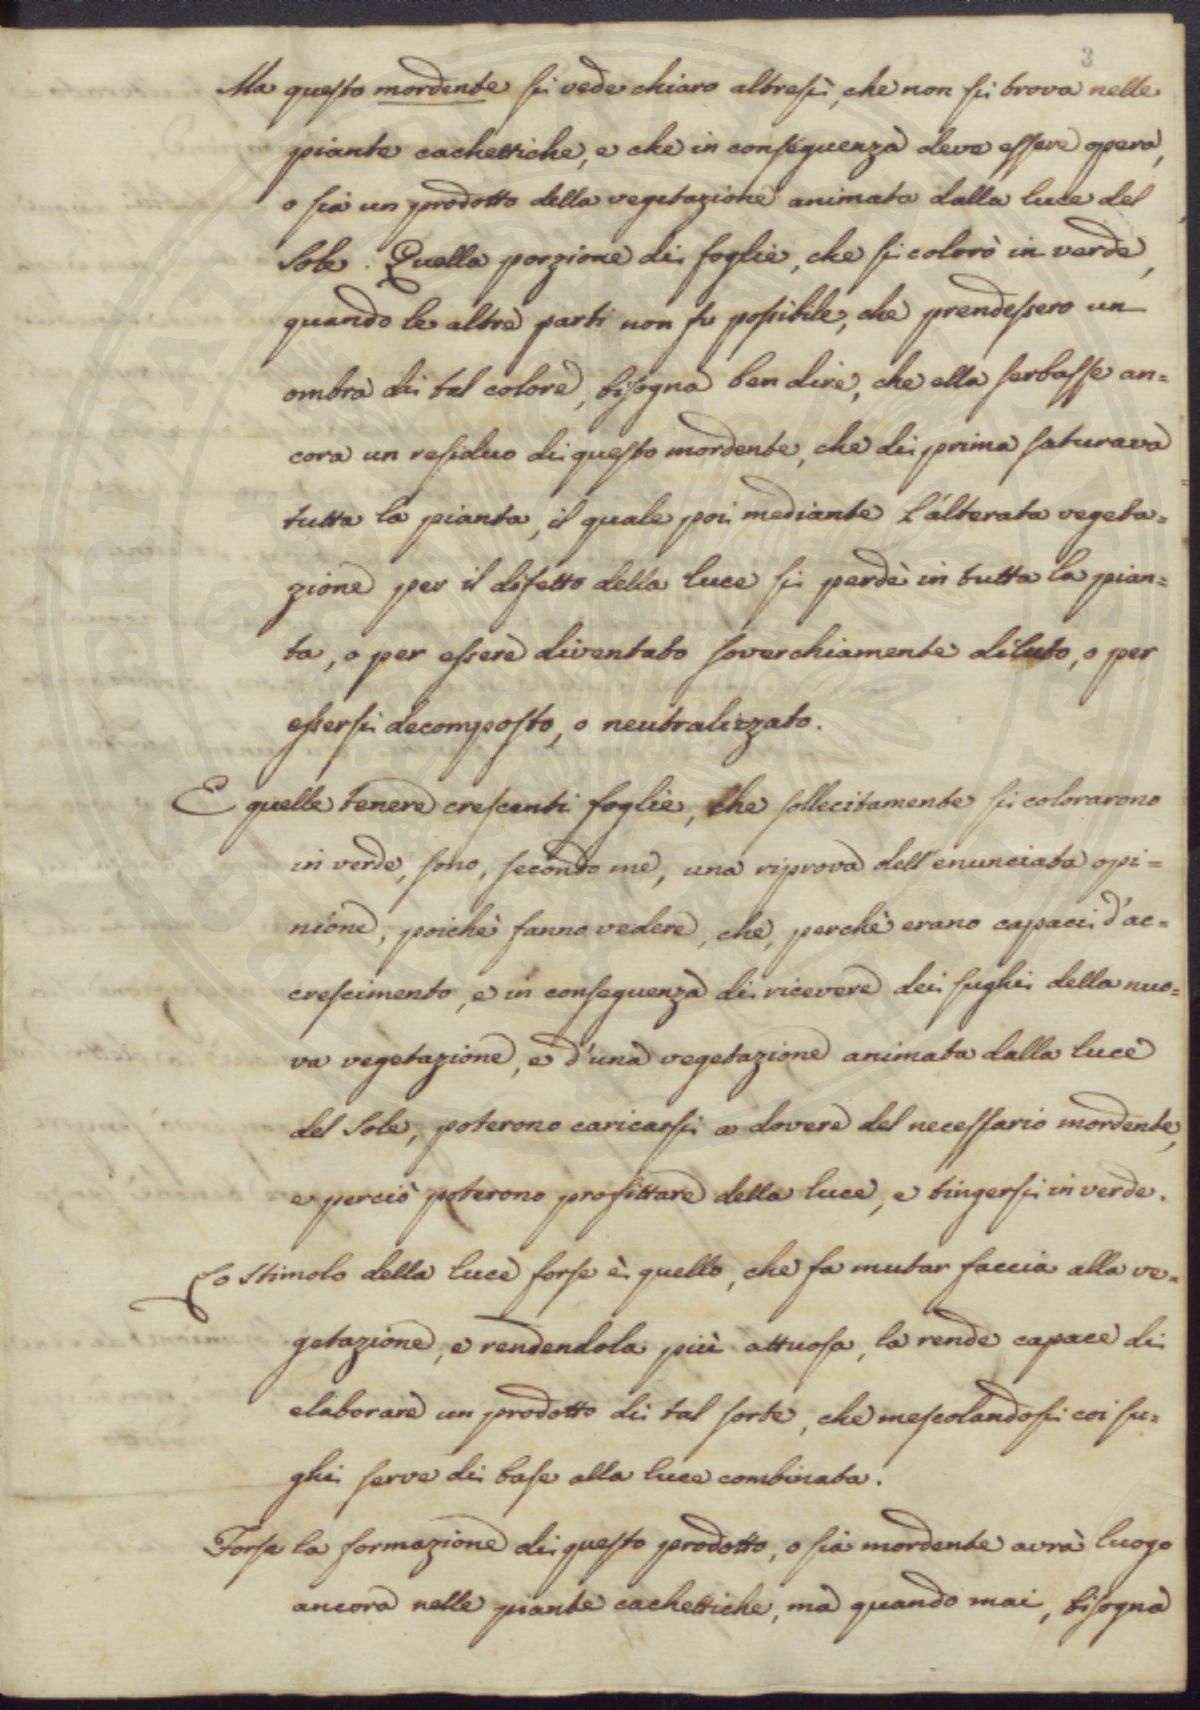 3
Ma questo mordente si vede chiaro altresì, che non si trova nelle
piante cachettiche, e che in conseguenza deve essere opera,
o sia un prodotto della vegetazione animata dalla luce del
Sole. Quella porzione di foglie, che si colorò in verde,
quando le altre parti non fu possibile, che prendessero un
ombra di tal colore, bisogna ben dire, che ella serbasse an=
cora un residuo di questo mordente, che di prima saturava
tutta la pianta, il quale poi mediante l'alterata vegeta=
zione per il difetto della luce si perdè in tutta la pian=
ta, o per essere diventato soverchiamente diluto, o per
essersi decomposto, o neutralizzato.
E quelle tenere crescenti foglie, che sollecitamente si colorarono
in verde, sono, secondo me, una riprova dell'enunciata opi=
nione, poichè fanno vedere, che, perchè erano capaci d'ac=
crescimento, e in conseguenza di ricevere dei sughi della nuo=
va vegetazione, e d'una vegetazione animata dalla luce
del Sole, poterono caricarsi a dovere del necessario mordente,
e perciò poterono profittare della luce, e tingersi in verde.
Lo stimolo della luce forse è quello, che fa mutar faccia alla ve=
getazione, e rendendola più attuosa, la rende capace di
elaborare un prodotto di tal sorte, che mescolandosi coi su=
ghi serve di base alla luce combinata.
Forse la formazione di questo prodotto, o sia mordente avrà luogo
ancora nelle piante cachettiche, ma quando mai, bisogna